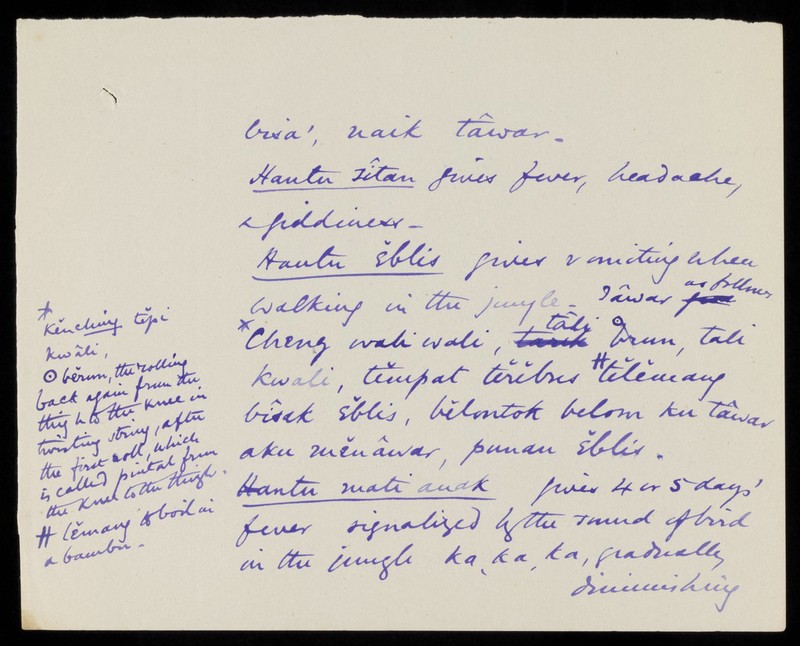 bisa', naik tâwar -
Hantu Sîtan gives fever, headache,
& giddiness -
Hantu Ĕblis gives vomiting when
walking in the jungle - Tâwar as follows
*Cheng wali wali, tâli ⊙ brun, tali
kwali, tĕmpat tĕrĕbus #tĕlĕmang
bîsak Ĕblis, bĕlontok belom ku tâwar
aku mĕnâwar, punau Ĕblis -
Hantu mati anak gives 4 or 5 days'
fever signalized by the sound of bird
in the jungle ka, ka, ka, gradually
diminishing
* Kĕnching tĕpi
kwâli,
⊙ bĕrun, the rolling
back again from the
thigh to the knee in
twisting string, after
the first roll, which
is called pintal from
the knee to the thigh -
# lĕmang to boil in
a bambu -